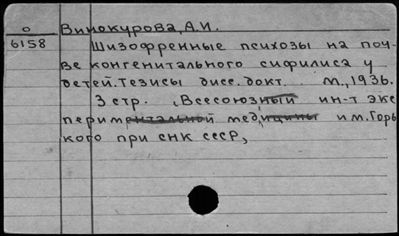 О
6158
Винокурова, А.И.
Шизофренные психозы на поч-
ве конгенитального сифилиса у
детей. Тезисы дисс. докт. М., 1936.
3 стр. (Всесоюзный ин-т экс
периментальной медицины им. Горь
кого при СНК СССР)